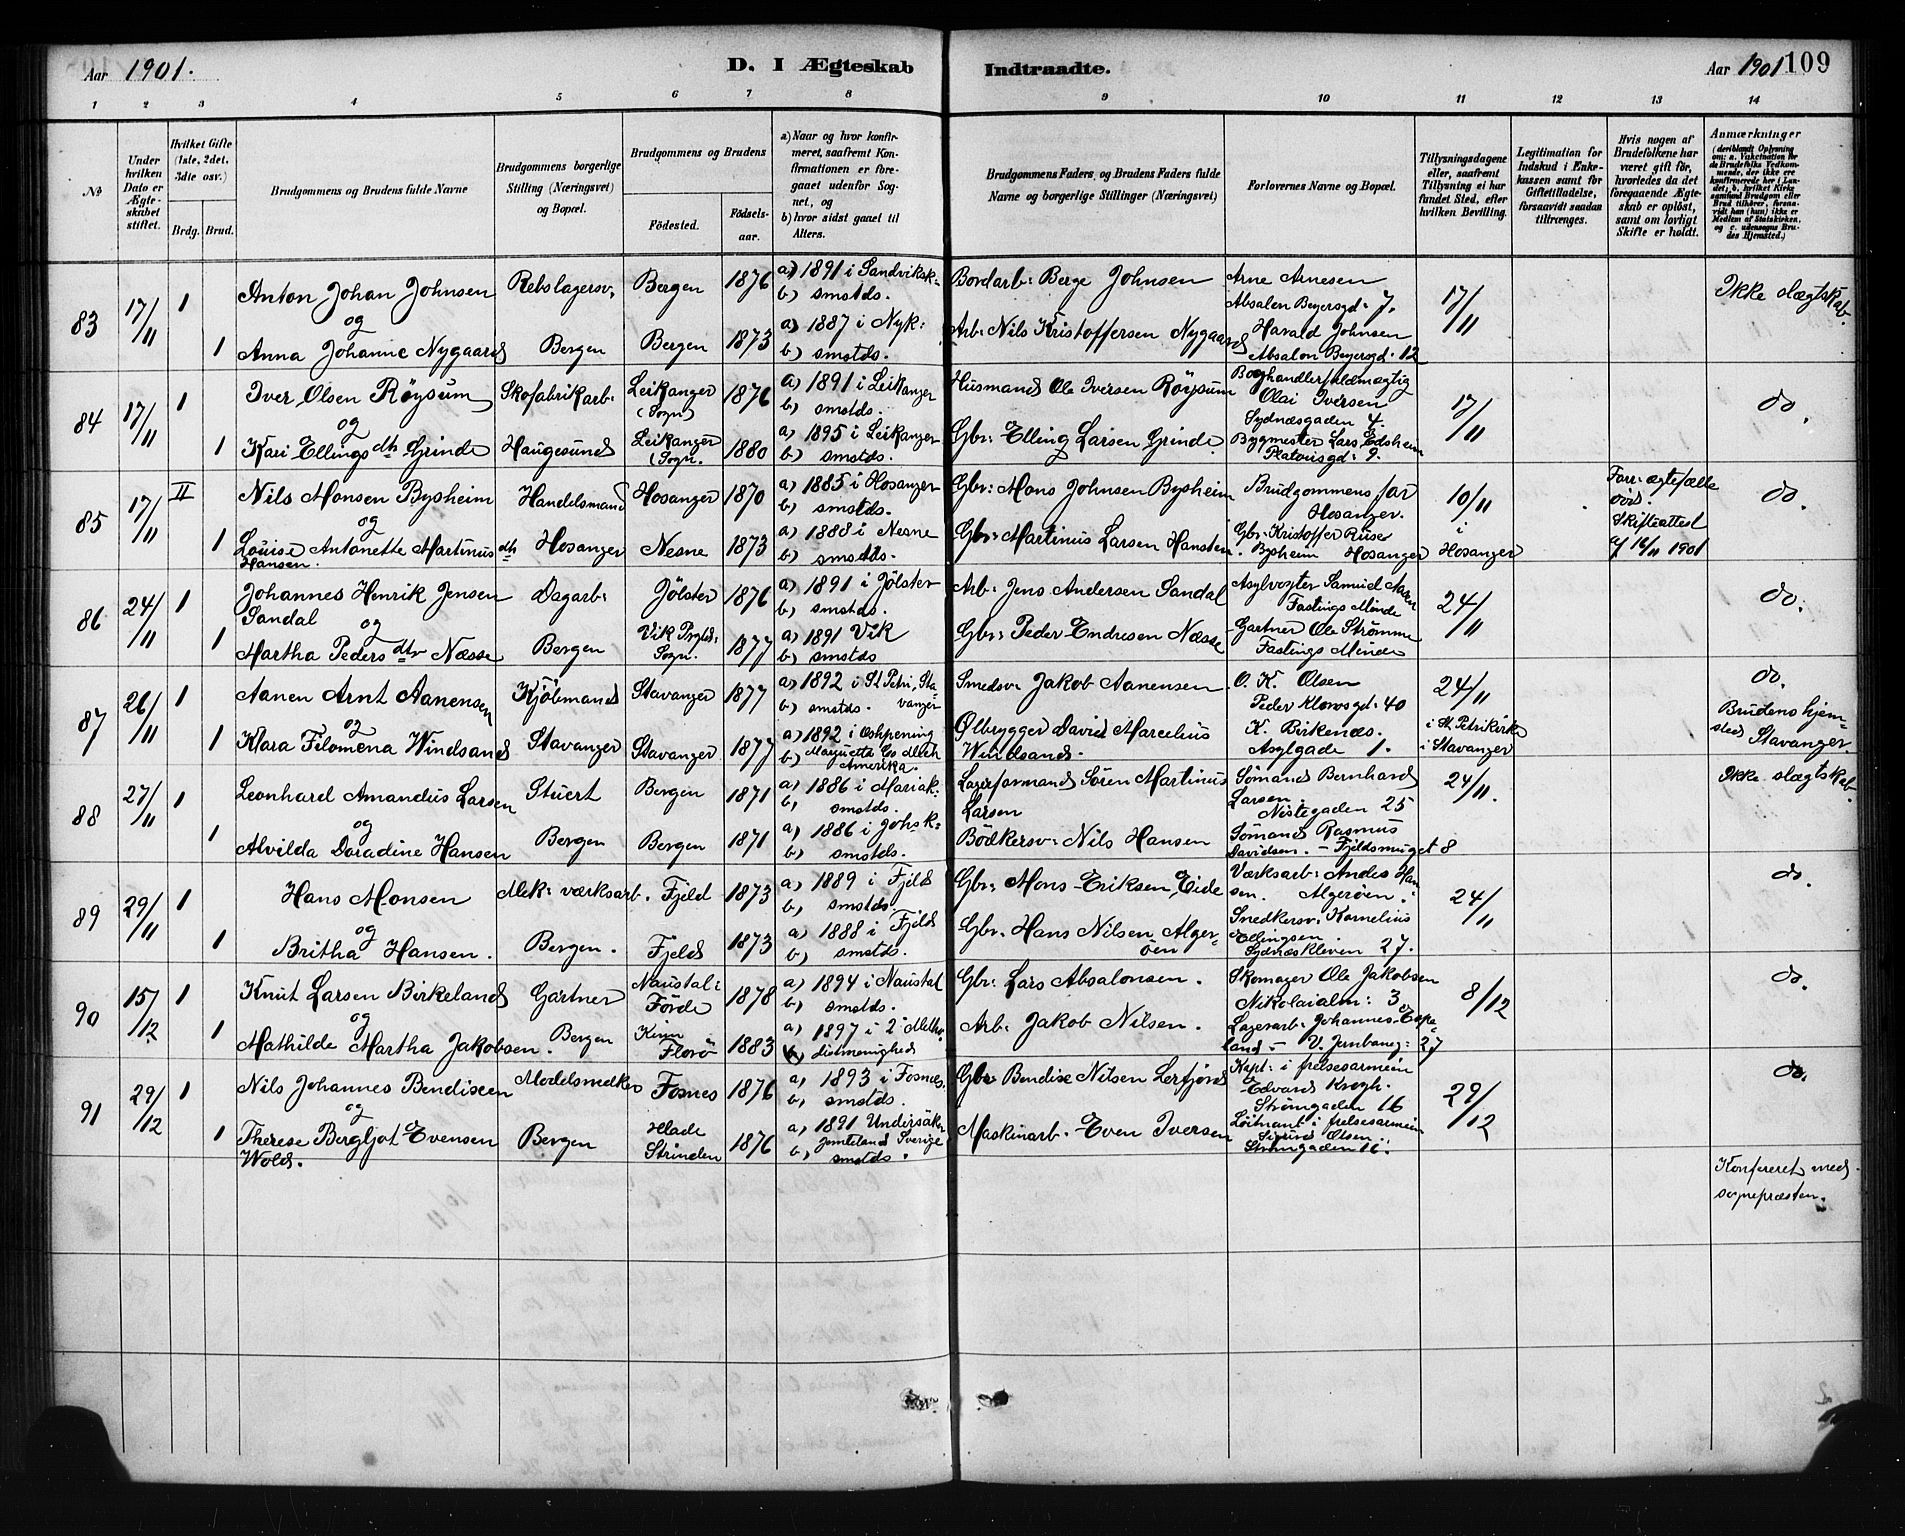 Aar 1901.
D. I Ægteskab Indtraadte.
Aar 1901 109
1 2 3 4 5 6 7 8 9 10 11 12 13 14
No
Under hvilken Dato er Ægteskabet stiftet.
Hvilket Gifte (1ste, 2det, 3die osv.)
Brdg. Brud.
Brudgommens og Brudens fulde Navne
Brudgommens borgerlige Stilling (Næringsvei) og Bopæl.
Brudgommens og Brudens
Fødested. Fødselsaar.
a) Naar og hvor konfirmeret, saafremt Konfirmationen er foregaaet udenfor Sognet, og
b) hvor sidst gaaet til Alters.
Brudgommens Faders og Brudens Faders fulde Navne og borgerlige Stillinger (Næringsvei)
Forlovernes Navne og Bopæl.
Tillysningsdagene eller, saafremt Tillysning ei har fundet Sted, efter hvilken Bevilling.
Legitimation for Indskud i Enkekassen samt for Giftetilladelse, forsaavidt saadan tiltrænges.
Hvis nogen af Brudefolkene har været gift før, hvorledes da det foregaaende Ægteskab er opløst, samt om lovligt Skifte er holdt.
Anmærkninger (deriblandt Oplysning om: a. Vakcination for de Brudefolks Vedkommende, der ikke ere konfirmerede her i Landet; b. hvilket Kirkesamfund Brudgom eller Brud tilhører, forsaavidt han (hun) ikke er Medlem af Statskirken, og c. udensogns Brudes Hjemsted.)
83 17/11 1 Anton Johan Johnsen Rebslagersv: Bergen 1876 a) 1891 i Sandviksk: b) smstds. Bordarb: Berge Johnsen Arne Arnesen Absalon Beyersgd: 7. 17/11 Ikke slægtskab.
og
1 Anna Johanne Nygaard Bergen Bergen 1873 a) 1887 i Nyk: b) smstds. Arb: Nils Kristoffersen Nygaard Harald Johnsen Absalon Beyersgd: 12
84 17/11 1 Iver Olsen Röysum Skofabrikarb: Leikanger (Sogn) 1876 a) 1891 i Leikanger b) smstds. Husmand Ole Iversen Röysum Boghandlerfuldmægtig Olai Iversen Sydnæsgaden 4. 17/11 do.
og
1 Kari Ellingsdtr Grinde Haugesund Leikanger (Sogn. 1880 a) 1895 i Leikanger b) smstds. Gbr: Elling Larsen Grinde Bygmester Lars Edsheim Platousgd: 9.
85 17/11 II Nils Monsen Bysheim Handelsmand Hosanger 1870 a) 1885 i Hosanger b) smstds. Gbr: Mons Johnsen Bysheim Brudgommens far Hosanger. 10/11 Forr: ægtefælle död. do
og
1 Louise Antonette Martinusdtr Hansen. Hosanger Nesne 1873 a) 1888 i Nesne b) smstds. Gbr: Martinus Larsen Hansten. Gbr: Kristoffer Ruse Bysheim Hosanger i Hosanger Skifteattest af 16/11 1901
86 24/11 1 Johannes Henrik Jensen Sandal Dagarb: Jölster 1876 a) 1891 i Jölster b) smstds. Arb: Jens Andersen Sandal Asylvogter Samuel Fastings Minde 24/11 do.
og
1 Martha Pedersdtr Næsse Bergen Vik Prgld: Sogn. 1877 a) 1891 Vik b) smstds Gbr: Peder Endresen Næsse Gartner Ole Strömme Fastings Minde
87 26/11 1 Aanen Arnt Aanensen Kjöbmand Stavanger 1877 a) 1892 i St Petri, Stavanger b) smstds. Smedsv: Jakob Aanensen. O. K. Olsen Peder Klowsgd: 40 24/11 do.
og
1 Klara Filomena Windsand Stavanger Stavanger 1877 a) 1892 i Ishpening b) Marquetta Co. Mich Amerika. Ölbrygger David Marcelius Windsand. K. Birkenæs. Asylgade 1. i St. Petrikirke i Stavanger Brudens hjemsted Stavanger.
88 27/11 1 Leonhard Amandus Larsen Stuert Bergen 1871 a) 1886 i Mariak: b) smstds. Lagerformand Sören Martinus Larsen Sömand Bernhard Larsen. Nistegaden 25 24/11. Ikke slægtskab.
og
1 Alvilda Doradine Hansen Bergen Bergen 1871 a) 1886 i Johsk: b) smstds. Bödkersv: Nils Hansen Sömand Rasmus Davidsen. – Fjeldsmuget 8
89 29/11 1 Hans Monsen Mek: værksarb. Fjeld 1873 a) 1889 i Fjeld b) smstds. Gbr: Mons Eriksen Eide Værksarb: Andes Hansen. Algeröen. 24/11 do.
og
1 Britha Hansen. Bergen. Fjeld 1873 a) 1888 i Fjeld b) smstds. Gbr: Hans Nilsen Algeröen Snedkersv: Kornelius Ellingsen. Sydnæskleven 27.
90 15/12 1 Knut Larsen Birkeland Gartner Naustal i Förde 1878 a) 1894 i Naustal b) smstds. Gbr: Lars Absalonsen. Skomager Ole Jakobsen Nikolaialm: 3 8/12 do.
og
1 Mathilde Martha Jakobsen. Bergen Kinn Florö 1883 a) 1897 i 2: Methodistmenighed b) Arb: Jakob Nilsen. Lagerarb: Johannes Espeland – V. Jernbaneg: 27
91 29/12 1 Nils Johannes Bendiscen Modelsnedker Fosnes 1876 a) 1893 i Fosnes. b) smstds. Gbr Bendix Nilsen Lerfjord Kapt: i frelsesarmeen Edvard Krogh. Strömgaden 16 29/12 do.
og
1 Therese Bergljot Evensen Wold. Bergen Hlade Strinden 1876 a) 1891 Undersåker Jemteland Sverige b) smstds. Maskinarb. Even Iversen Löitnant i frelsesarmeen Sigurd Olsen. Strömgaden 16.
Konfereret med sognepræsten.